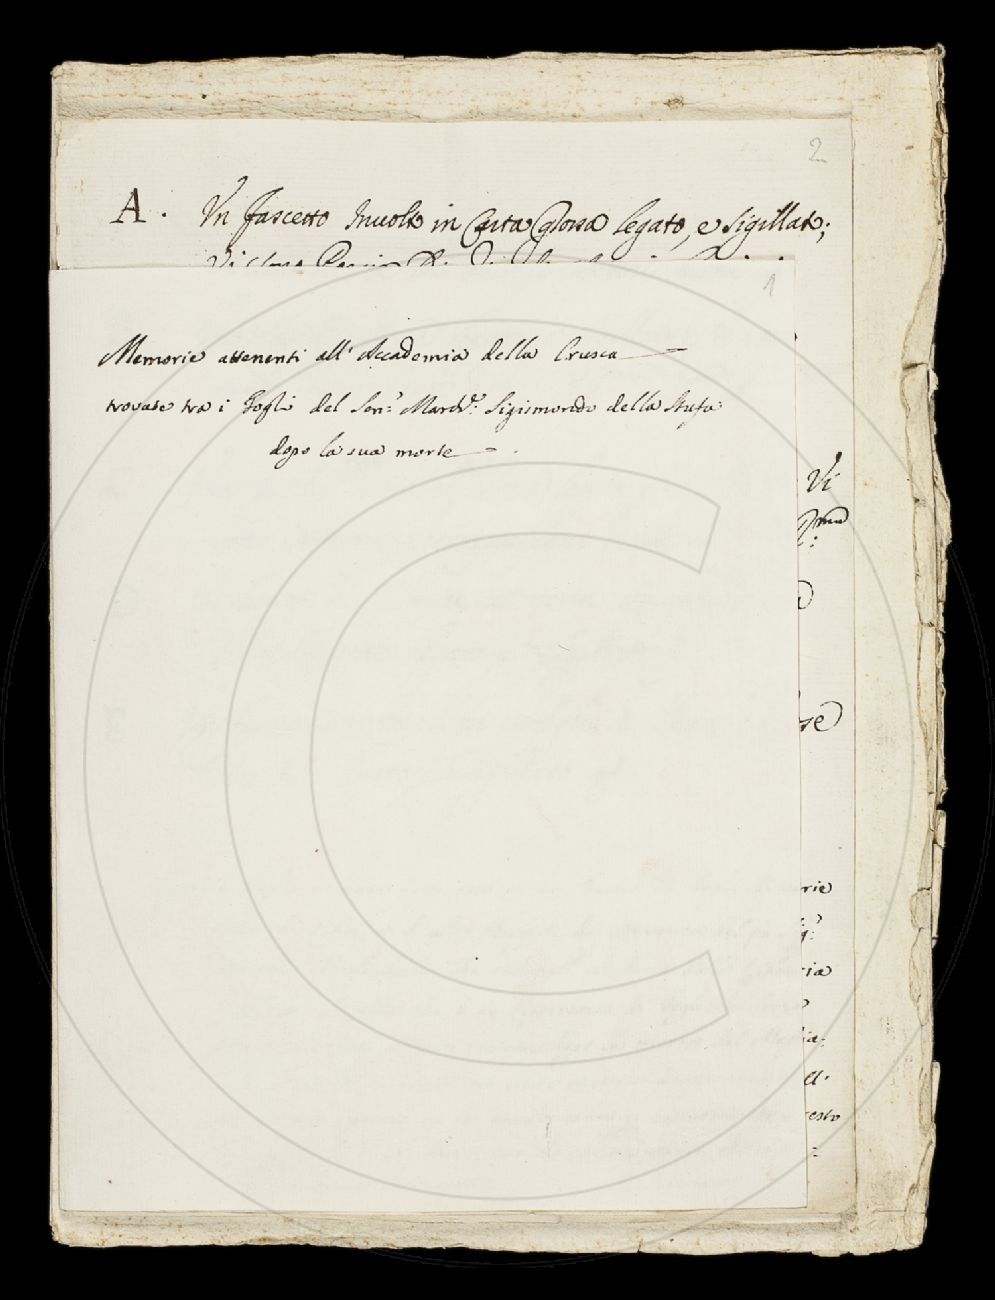 2
A. Vn fascetto Inuolto in Carta Grossa legato, e sigillato;
1
Memorie attenenti all' Accademia della Crusca
trovate tra i Fogli del Sen:ᵉ March:ᵉ Sigismondo della Stufa
dopo la sua morte
Vi
se
rie
ria
esto